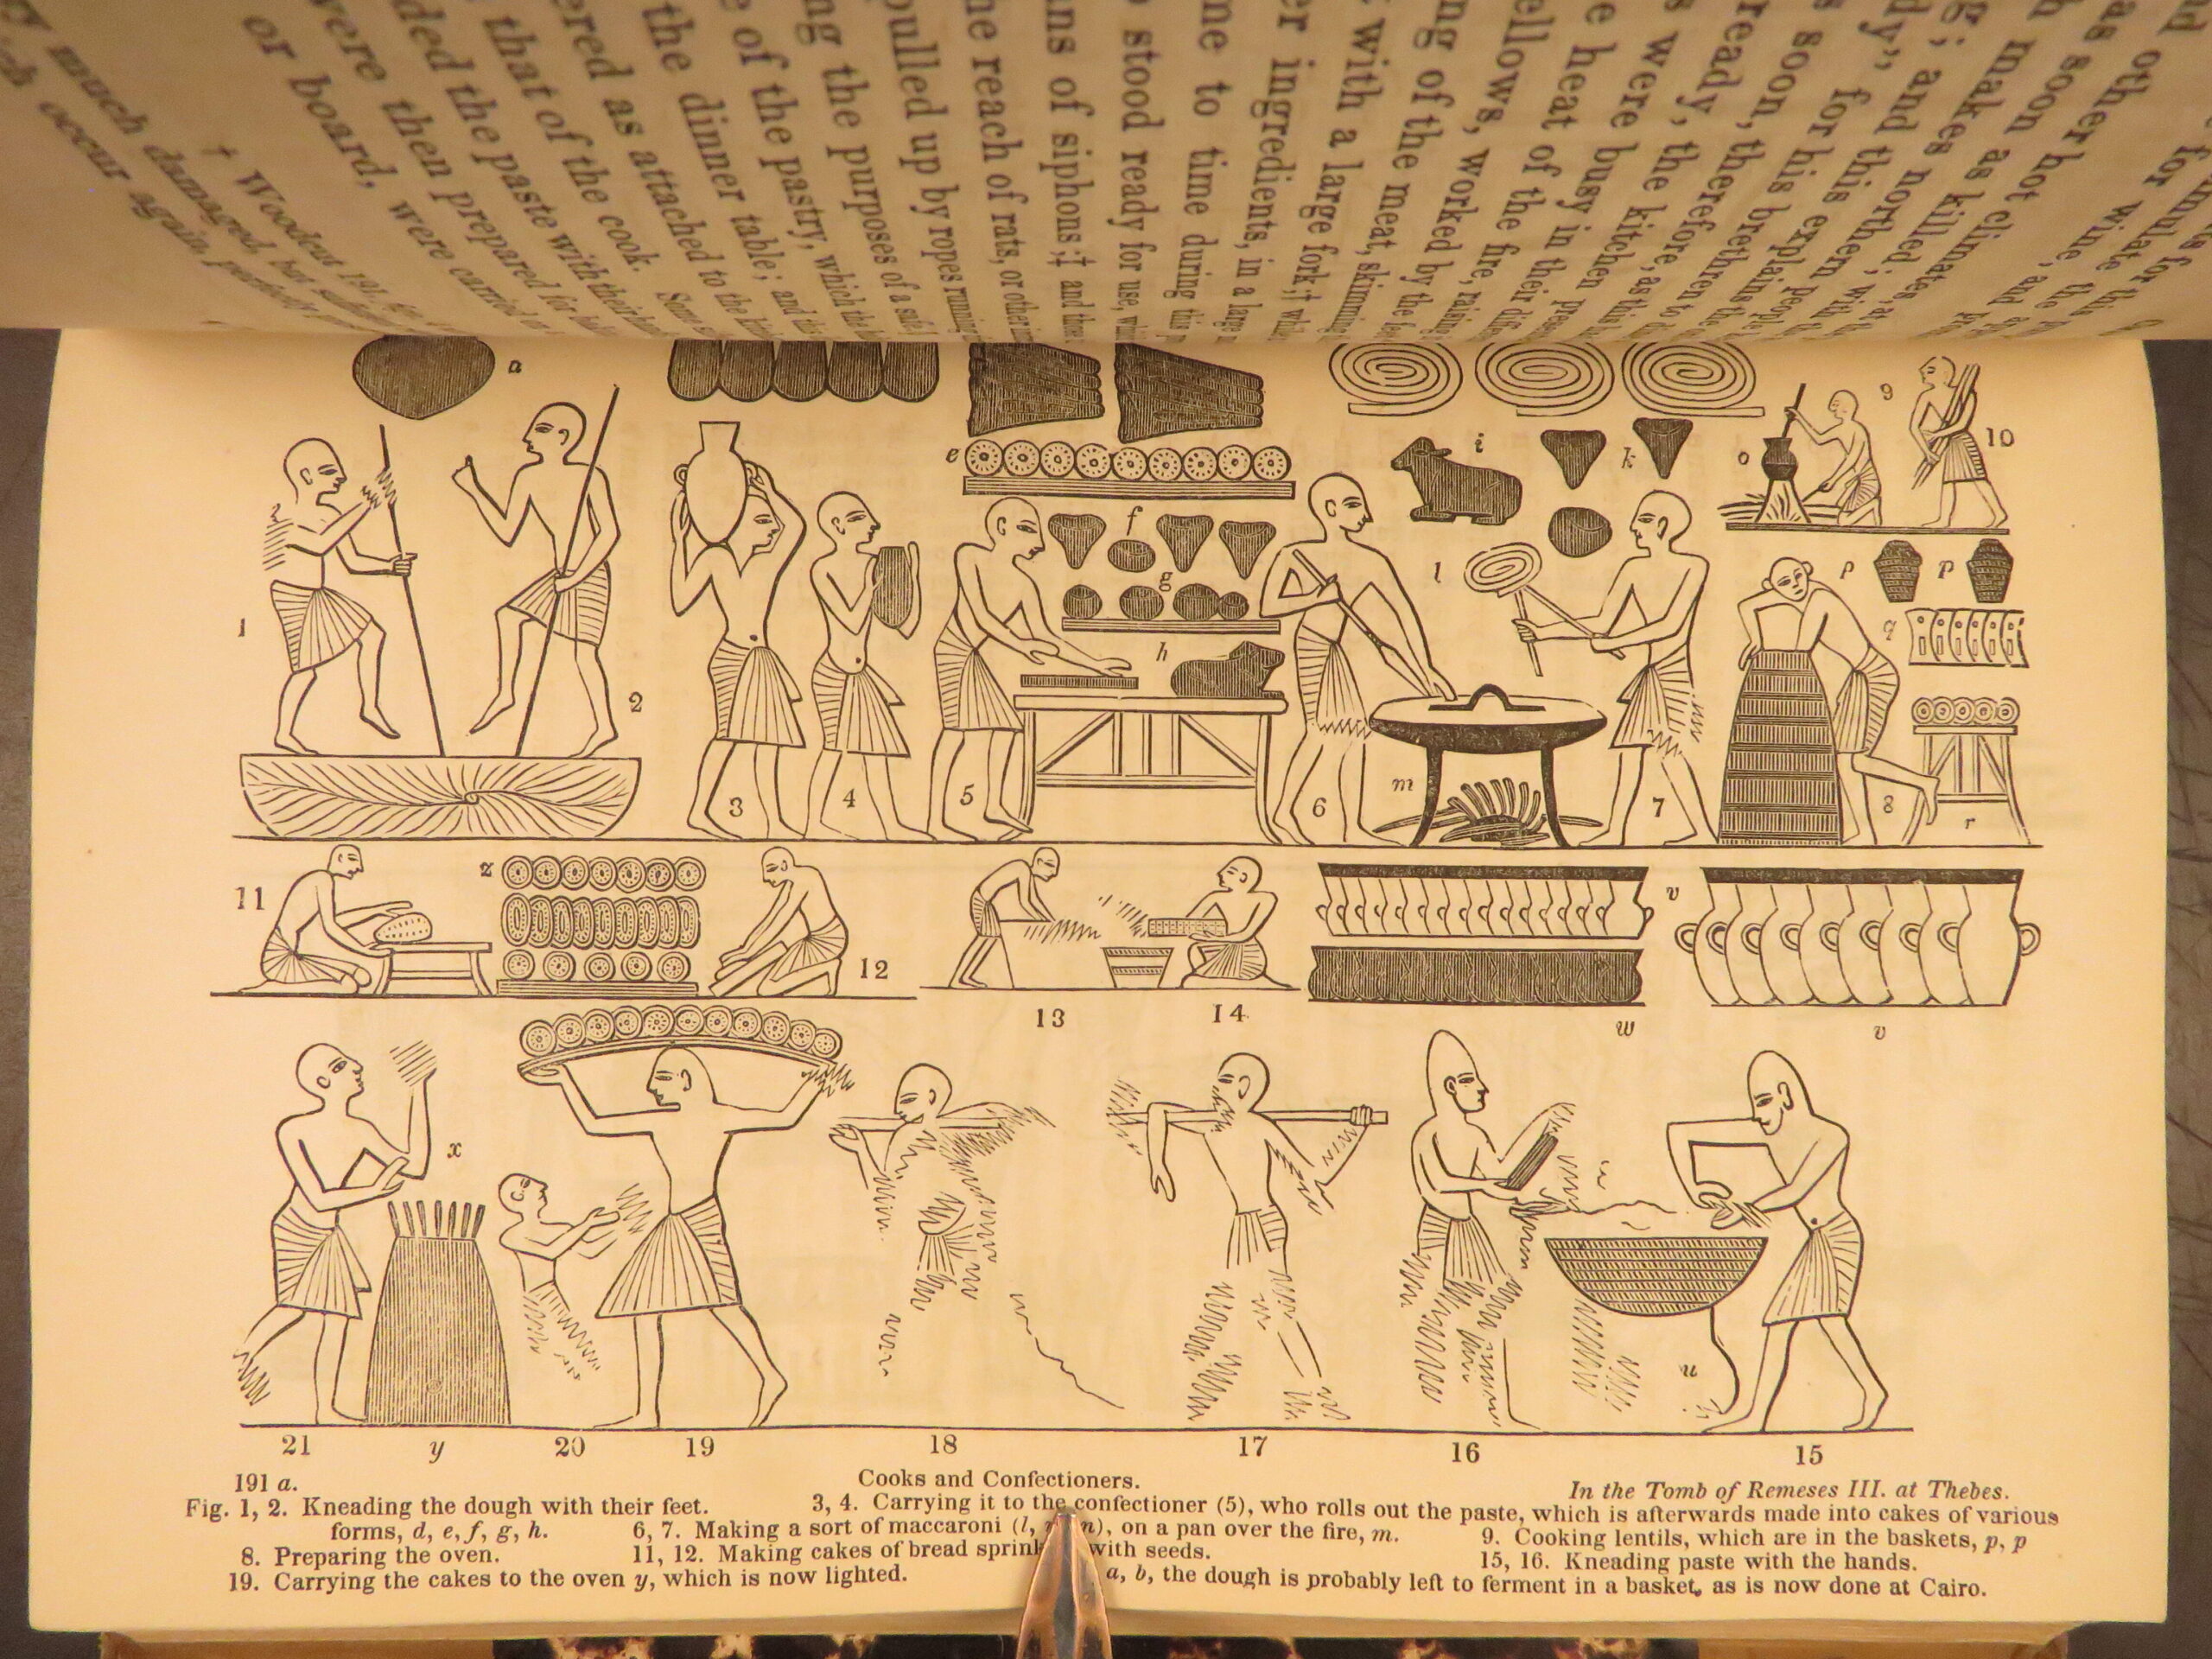 nd other hot climates, at
as soon as killed; with
h makes northern people
g; and this explains the
dy" for his brethren to
s soon, therefore, as this
ready, the kitchen
s were busy in their
e heat of the fire, raising
ellows, worked by the
ng of the meat, skimming
with a large fork;† whi
er ingredients, in a large
me to time during this
stood ready for use,
ans of siphons;† and
he reach of rats, or other
pulled up by ropes running
ng the purposes of a safe
e of the pastry, which the
the dinner table; and
ered as attached to the
that of the cook. Some
ded the paste with their
were then prepared for
or board, were carried
† Woodcut 191,
much damaged, but
ch occur again,
a
e
f
g
h
i
k
l
m
o
9
10
p p
q
r
1
2
3
4
5
6
7
8
11
z
12
13
14
v
w
v
x
u
21
y
20
19
18
17
16
15
191 a.
Cooks and Confectioners.
In the Tomb of Remeses III. at Thebes.
Fig. 1, 2. Kneading the dough with their feet. 3, 4. Carrying it to the confectioner (5), who rolls out the paste, which is afterwards made into cakes of various
forms, d, e, f, g, h. 6, 7. Making a sort of maccaroni (l, n), on a pan over the fire, m. 9. Cooking lentils, which are in the baskets, p, p
8. Preparing the oven. 11, 12. Making cakes of bread sprink with seeds. 15, 16. Kneading paste with the hands.
19. Carrying the cakes to the oven y, which is now lighted. a, b, the dough is probably left to ferment in a basket, as is now done at Cairo.